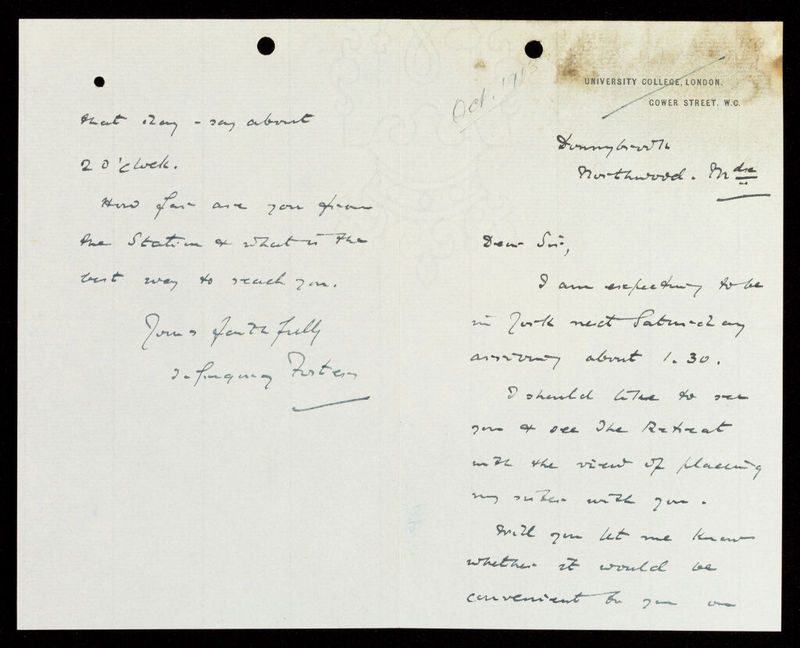 Oct. 1915
UNIVERSITY COLLEGE, LONDON.
GOWER STREET. W.C.
Northwood. Mdx
Dear Sir,
I am expecting to be
in York next Saturday
arriving about 1.30.
I should like to see
you & see The Retreat
with the view of placing
my sister with you.
Will you let me know
whether it would be
convenient to you on
that day - say about
2 O'clock.
How far are you from
the Station & what is the
best way to reach you.
Yours faithfully
Foster